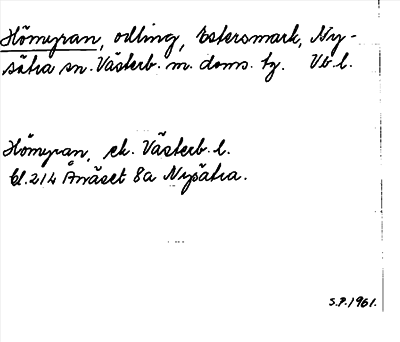 Hömyran, odling, Estersmark, Ny-
sätra sn. Västerb. m. doms. tg. Vb. l.
Hömyran, ek. Västerb. l.
bl. 214 Ånäset 8a Nysätra.
S.P. 1961.